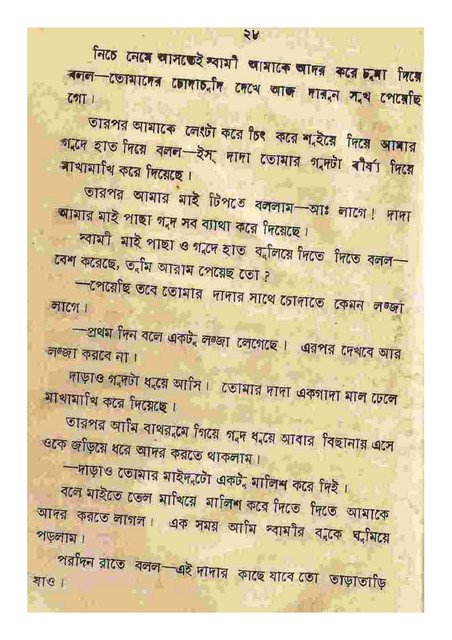 ২৮
নিচে নেমে আসতেই স্বামী আমাকে আদর করে চুমা দিয়ে
বলল—তোমাদের চোদাচুদি দেখে আজ দারুন সুখ পেয়েছি
গো।
তারপর আমাকে লেংটা করে চিৎ করে শুইয়ে দিয়ে আমার
গুদে হাত দিয়ে বলল—ইস্ দাদা তোমার গুদটা বীর্য দিয়ে
মাখামাখি করে দিয়েছে।
তারপর আমার মাই টিপতে বললাম—আঃ লাগে! দাদা
আমার মাই পাছা গুদ সব ব্যাথা করে দিয়েছে।
স্বামী মাই পাছা ও গুদে হাত বুলিয়ে দিতে দিতে বলল—
বেশ করেছে, তুমি আরাম পেয়েছ তো?
—পেয়েছি তবে তোমার দাদার সাথে চোদাতে কেমন লজ্জা
লাগে।
—প্রথম দিন বলে একটু লজ্জা লেগেছে। এরপর দেখবে আর
লজ্জা করবে না।
দাড়াও গুদটা ধুয়ে আসি। তোমার দাদা একগাদা মাল ঢেলে
মাখামাখি করে দিয়েছে।
তারপর আমি বাথরুমে গিয়ে গুদ ধুয়ে আবার বিছানায় এসে
ওকে জড়িয়ে ধরে আদর করতে থাকলাম।
—দাড়াও তোমার মাইদুটো একটু মালিশ করে দিই।
বলে মাইতে তেল মাখিয়ে মালিশ করে দিতে দিতে আমাকে
আদর করতে লাগল। এক সময় আমি স্বামীর বুকে ঘুমিয়ে
পড়লাম।
পরদিন রাতে বলল—এই দাদার কাছে যাবে তো তাড়াতাড়ি
যাও।